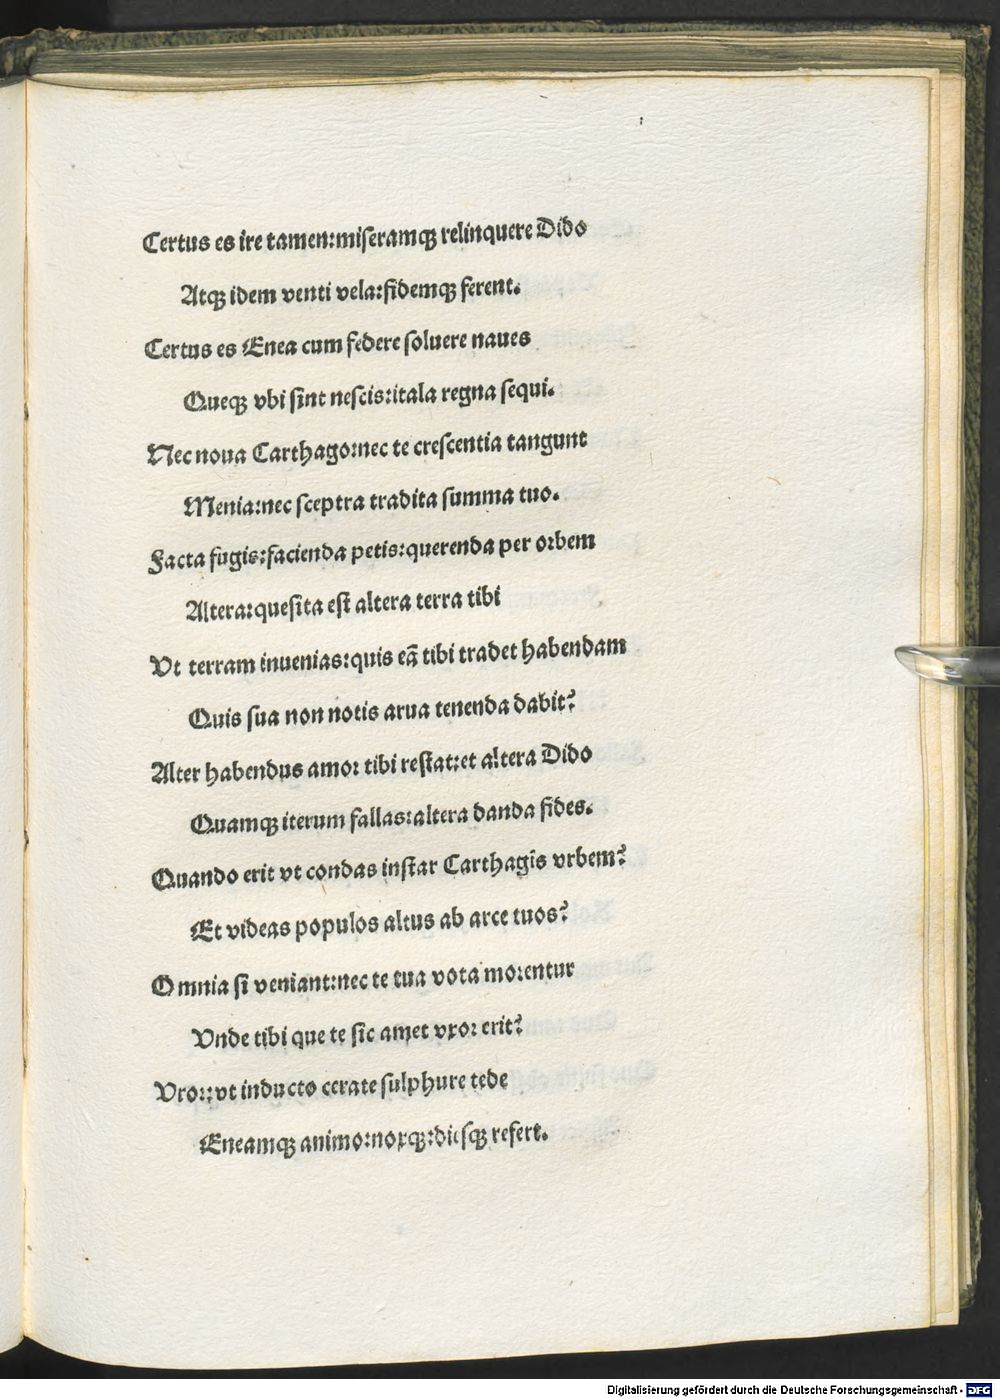 Certus es ire tamen:miseramqꝫ relinquere Dido
Atqꝫ idem venti vela:fidemqꝫ ferent.
Certus es Enea cum federe soluere naues
Queqꝫ vbi sint nescis:itala regna sequi.
Nec noua Carthago:nec te crescentia tangunt
Menia:nec sceptra tradita summa tuo.
Facta fugis:facienda petis:querenda per orbem
Altera:quesita est altera terra tibi
Vt terram inuenias:quis eā tibi tradet habendam
Quis sua non notis arua tenenda dabit?
Alter habendus amor tibi restat:et altera Dido
Quamqꝫ iterum fallas:altera danda fides.
Quando erit vt condas instar Carthagis vrbem?
Et videas populos altus ab arce tuos?
Omnia si veniant:nec te tua vota morentur
Vnde tibi que te sic amet vxor erit?
Vror:vt inducto cerate sulphure tede
Eneamqꝫ animo:noxqꝫ:diesqꝫ refert.
Digitalisierung gefördert durch die Deutsche Forschungsgemeinschaft - DFG